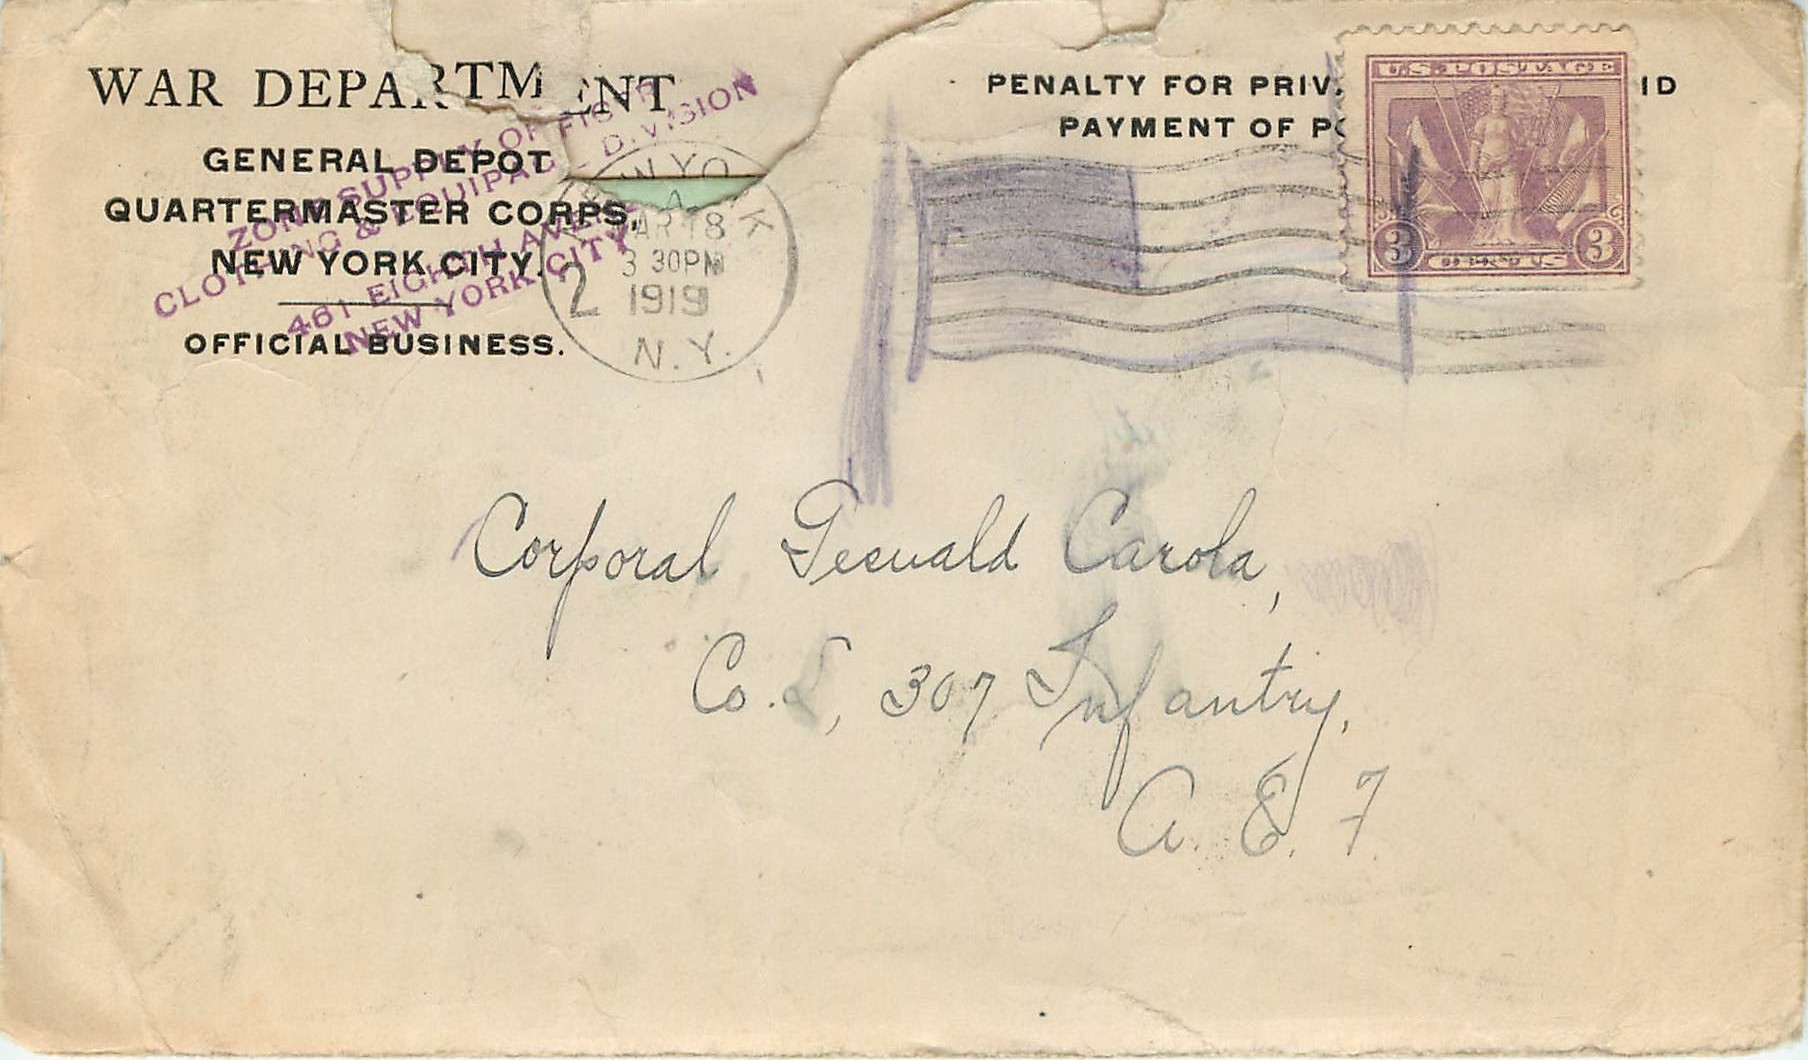 WAR DEPARTMENT
GENERAL DEPOT
QUARTERMASTER CORPS,
NEW YORK CITY.
OFFICIAL BUSINESS.
ZONE SUPPLY OFFICER
CLOTHING & EQUIPAGE DIVISION
461 EIGHTH AVENUE
NEW YORK CITY
NEW YORK
A
MAR 18
3 30PM
1919
2
N.Y.
PENALTY FOR PRIV ID
PAYMENT OF PO
U.S. POSTAGE
3 3
Corporal Gesuald Carola,
Co. L, 307 Infantry,
A. E. F.